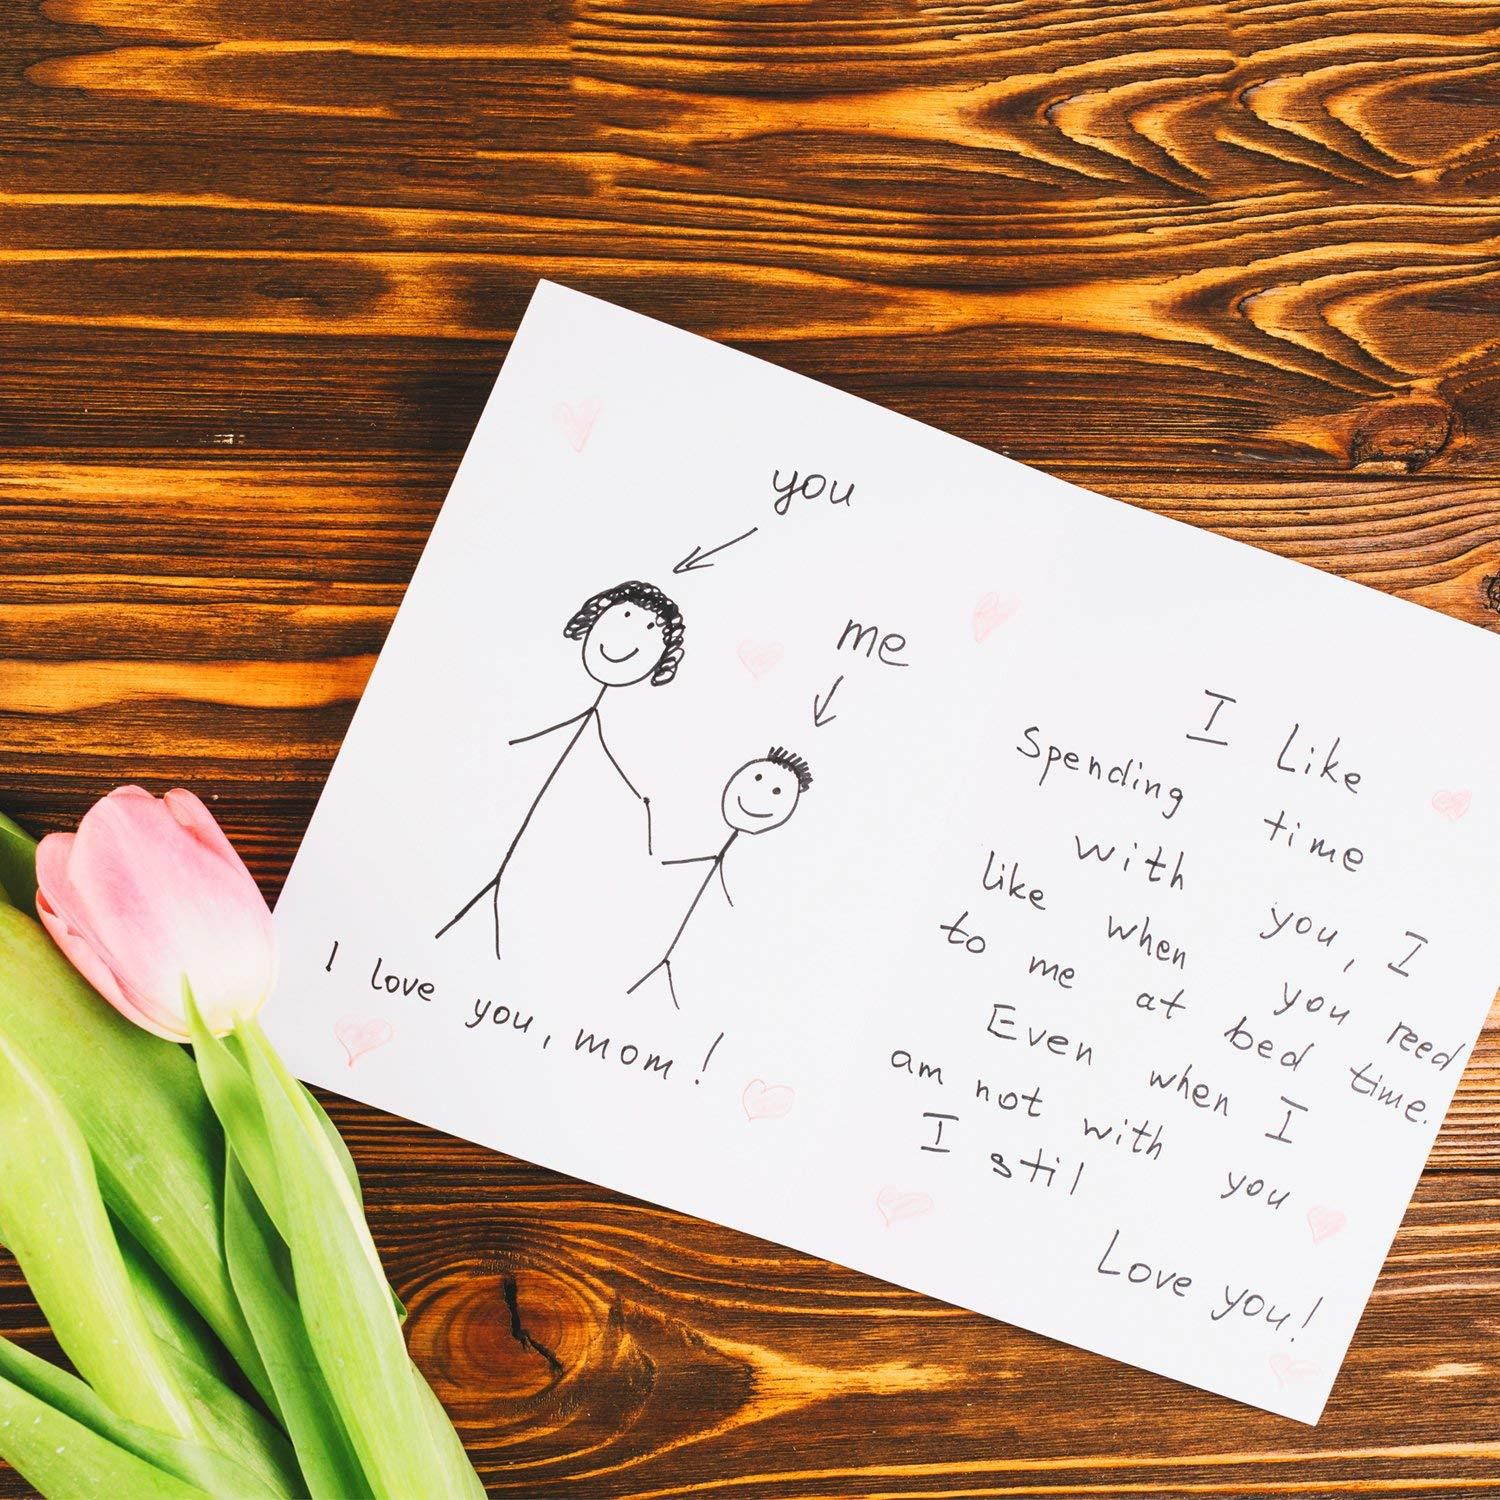 you
me
I love you, mom!
I Like
Spending time
with you, I
like when you reed
to me at bed time.
Even when I
am not with you
I stil
Love you!